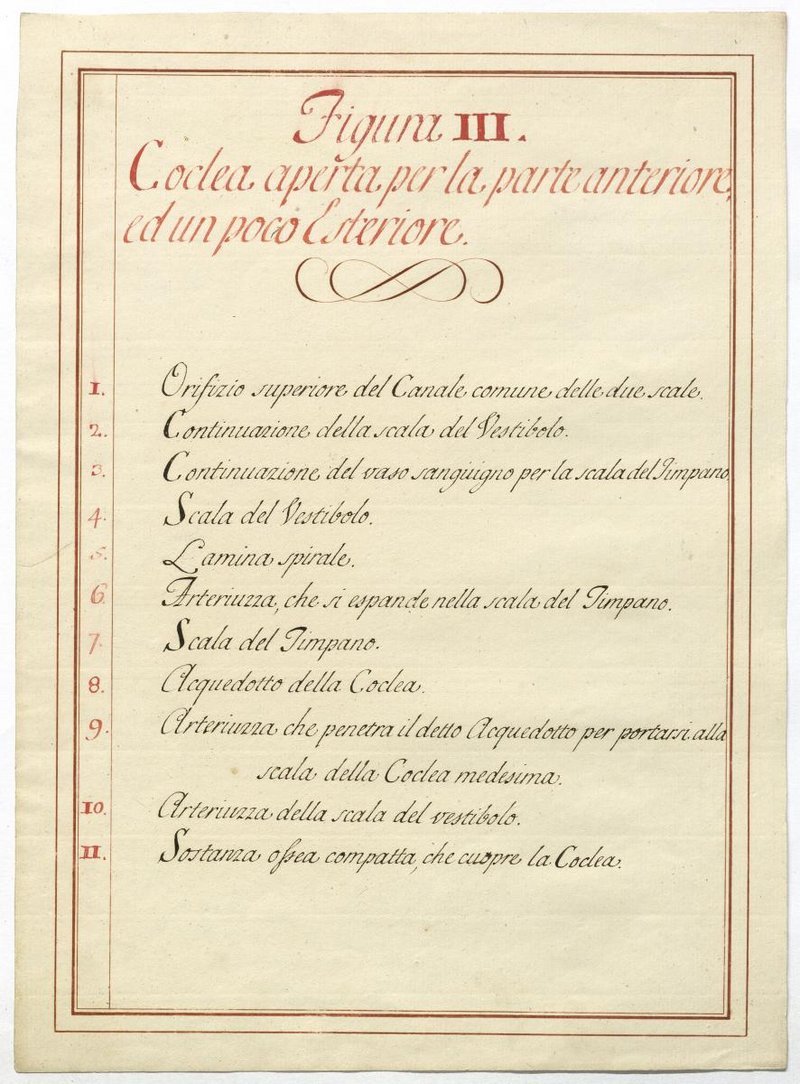 Figura III.
Coclea aperta per la parte anteriore,
ed un poco Esteriore.
1. Orifizio superiore del Canale comune delle due scale.
2. Continuazione della scala del Vestibolo.
3. Continuazione del vaso sanguigno per la scala del Timpano
4. Scala del Vestibolo.
5. Lamina spirale.
6. Arteriuzza, che si espande nella scala del Timpano.
7. Scala del Timpano.
8. Acquedotto della Coclea.
9. Arteriuzza che penetra il detto Acquedotto per portarsi alla
scala della Coclea medesima.
10. Arteriuzza della scala del vestibolo.
11. Sostanza ossea compatta, che cuopre la Coclea.